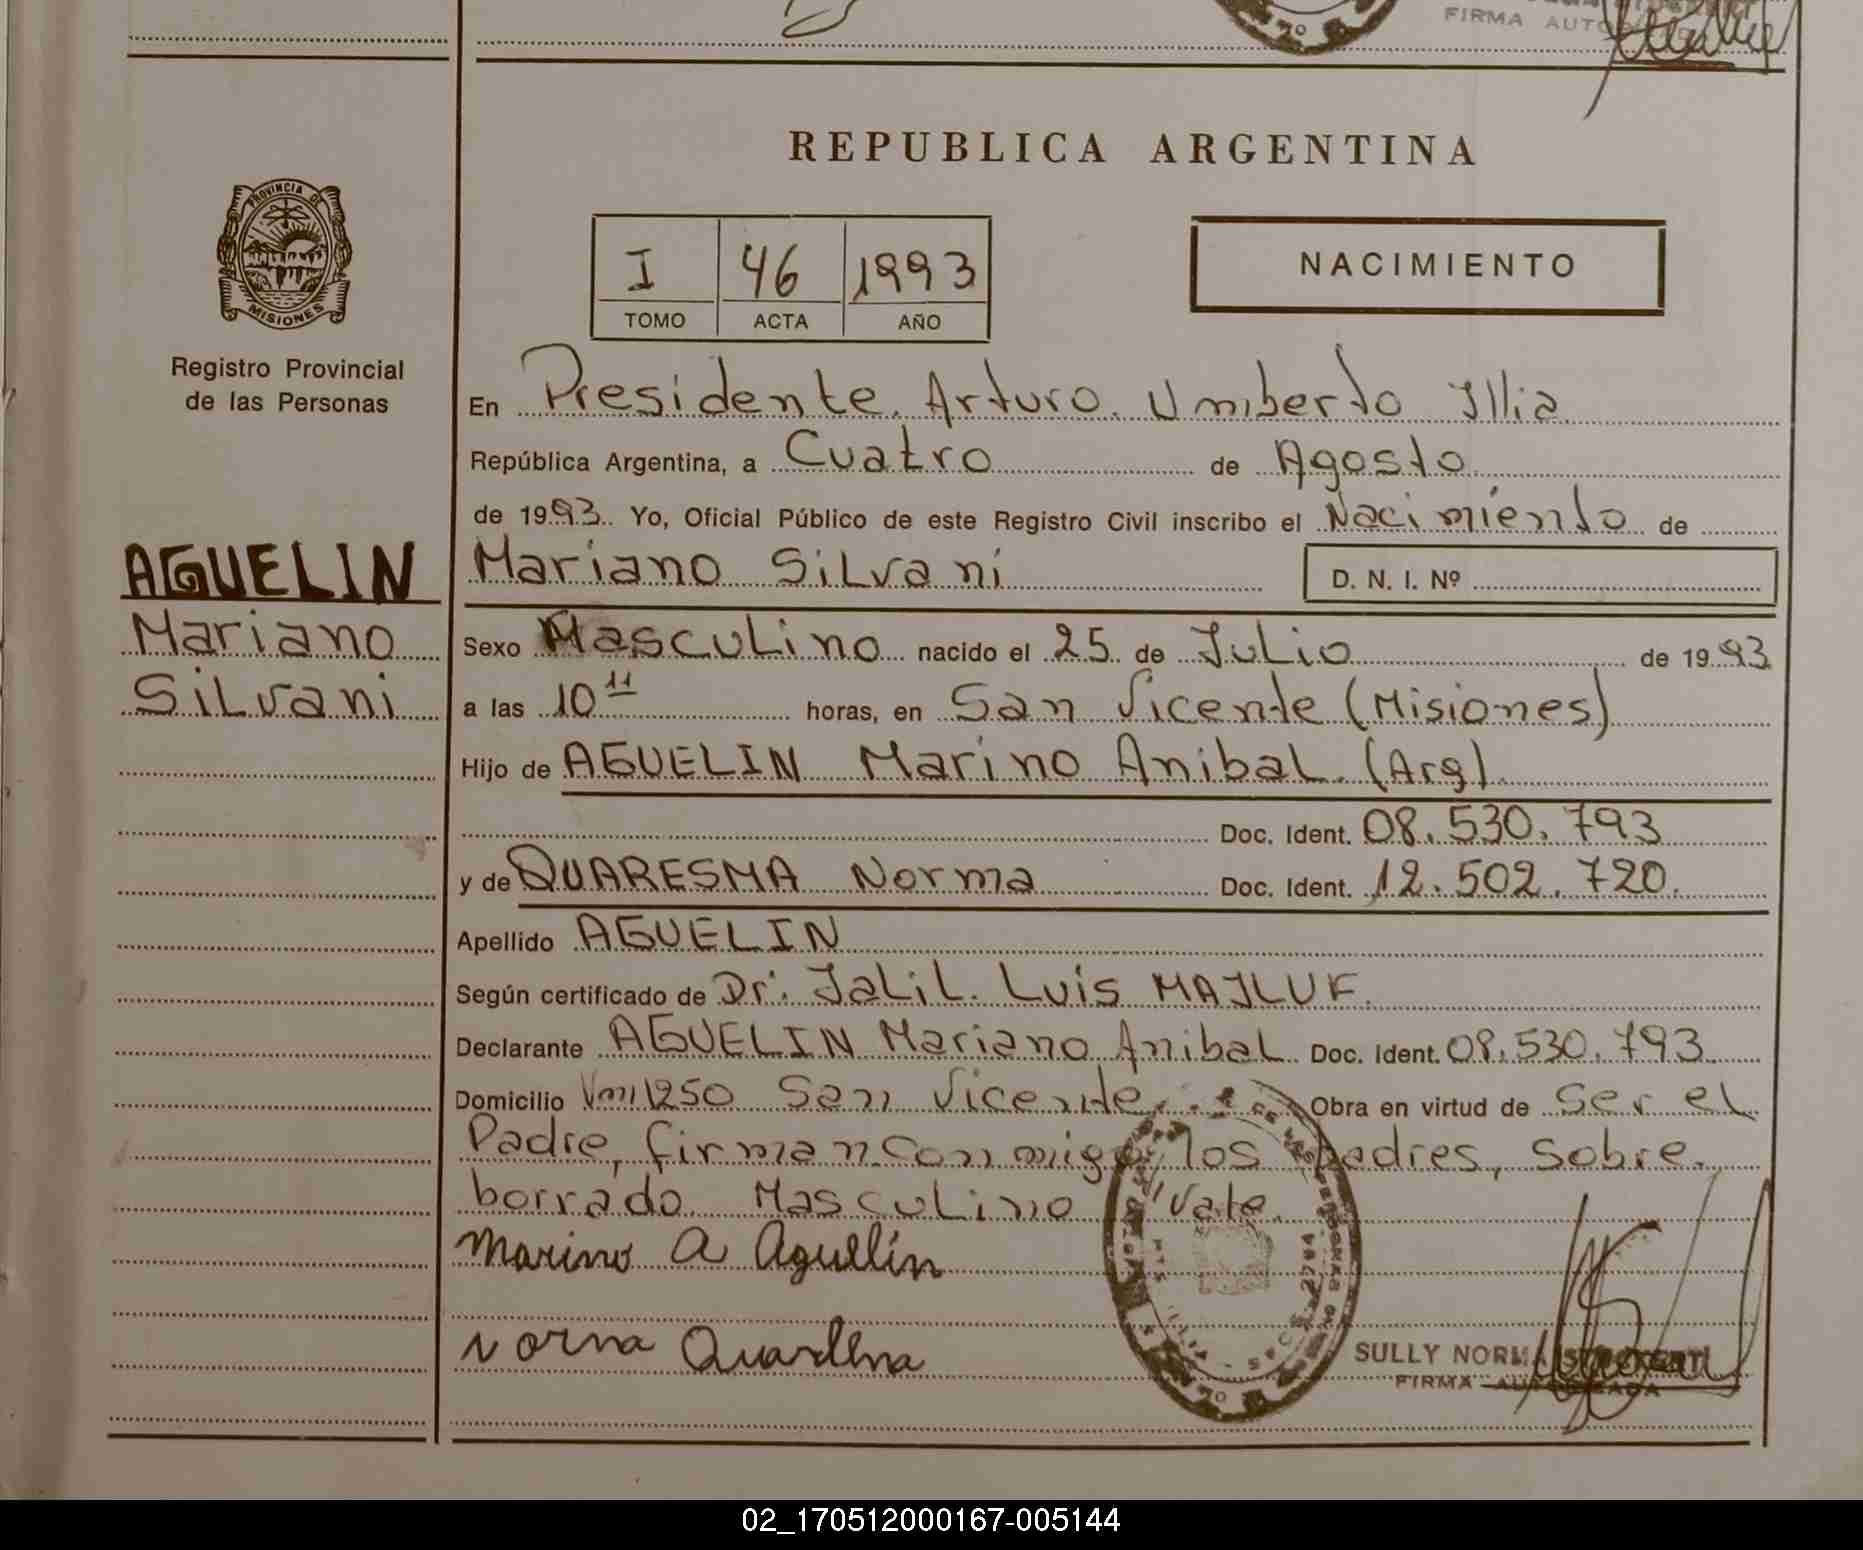 FIRMA
REPUBLICA ARGENTINA
PROVINCIA DE
MISIONES
Registro Provincial
de las Personas
I 46 1993
TOMO ACTA AÑO
NACIMIENTO
En Presidente Arturo Umberto Illia
República Argentina, a Cuatro de Agosto
de 1993. Yo, Oficial Público de este Registro Civil inscribo el Nacimiento de
AGUELIN
Mariano
Silvani
Mariano Silvani D. N. I. Nº
Sexo Masculino nacido el 25 de Julio de 1993
a las 10 11 horas, en San Vicente (Misiones)
Hijo de AGUELIN Marino Anibal (Arg)
Doc. Ident. 08.530.793
y de QUARESMA Norma Doc. Ident. 12.502.720.
Apellido AGUELIN
Según certificado de Dr. Jalil Luis MAJLUF.
Declarante AGUELIN Mariano Anibal Doc. Ident. 08.530.793
Domicilio Km 1250 San Vicente. Obra en virtud de Ser el
Padre, firman conmigo los padres, sobre
borrado Masculino Vale.
Marino A Aguelin
Norma Quaresma
SULLY NORMA
FIRMA AUTORIZADA
02_170512000167-005144